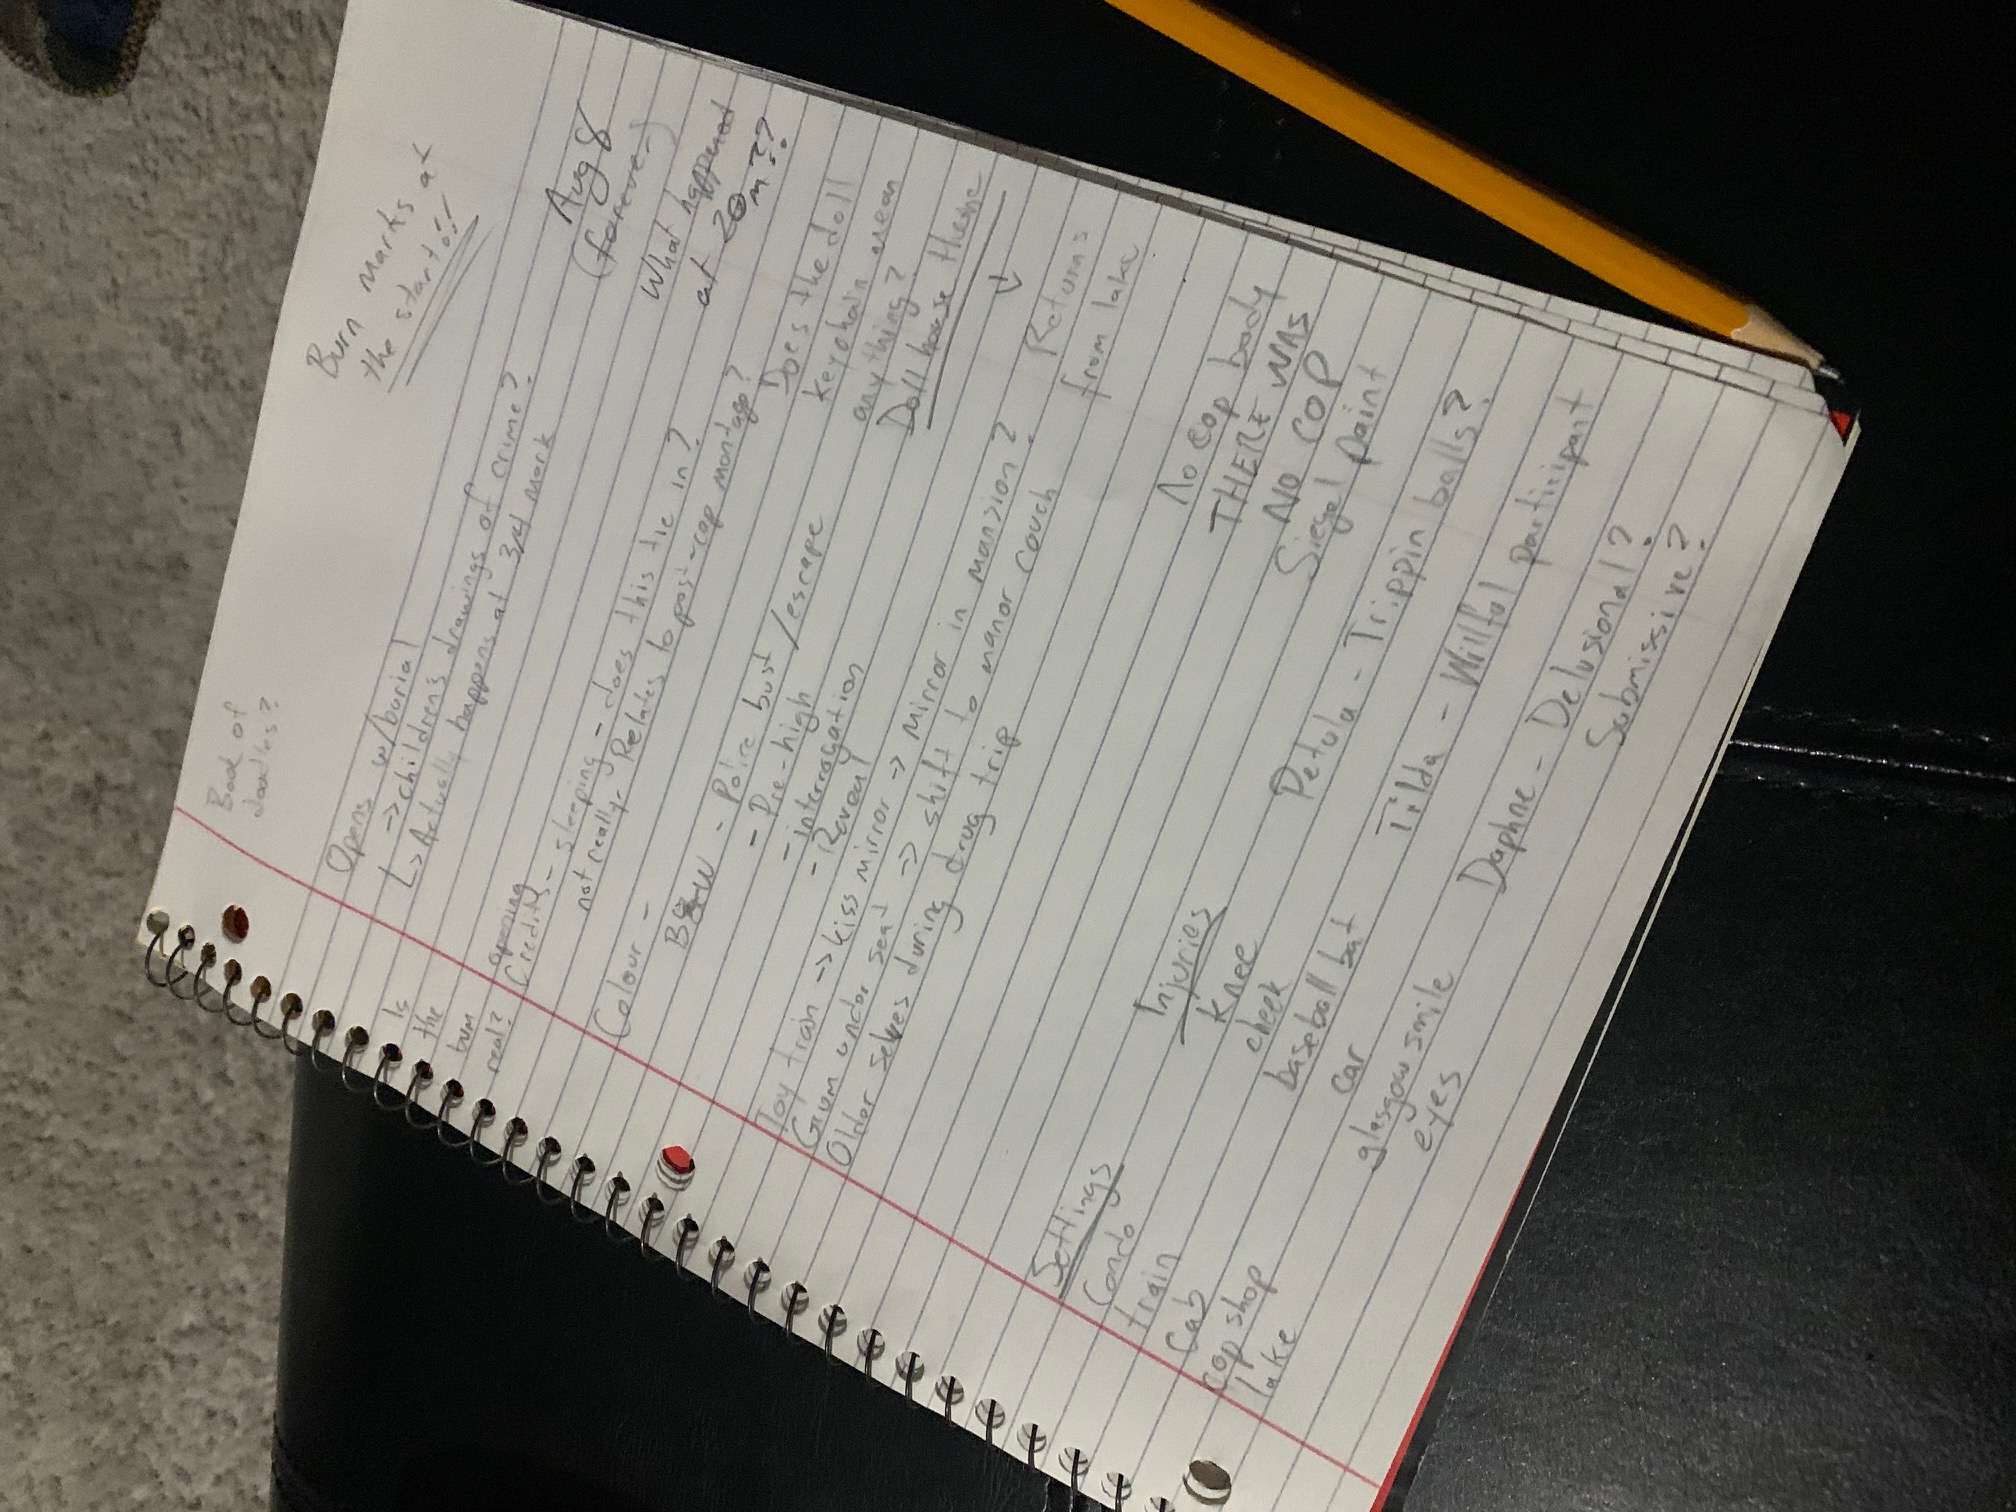 Book of
doodles?
Burn marks at
the start!!
Opens w/burial
↳ → children's drawings of crime?
↳ Actually happens at 3/4 mark
Aug 8
(forever)
Is
the
bum
real?
opening
Credits - sleeping - does this tie in?
not really - Relates to post-cop montage?
What happened
at 20m??
Colour -
B&W - Police bust/escape
- Pre-high
- interrogation
- Reveal
Does the doll
keychain mean
anything?
Doll house theme
Toy train → kiss mirror → mirror in mansion?
Gum under seat → shift to manor couch
Older selves during drug trip
Returns
from lake
Settings
Condo
train
Cab
cop shop
lake
Injuries
knee
cheek
baseball bat
car
glasgow smile
eyes
No cop body
THERE WAS
NO COP
Siegel paint
Petula - Trippin balls?
Tilda - Willful participant
Daphne - Delusional?
Submissive?